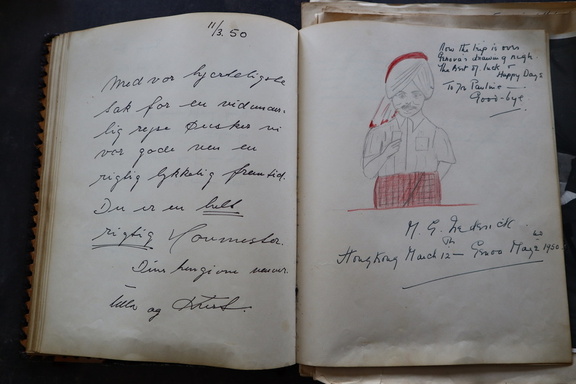 11/3.50
Med vor hjerteligste
tak for en vidunder-
lig rejse ønsker vi
vor gode ven en
rigtig lykkelig fremtid.
Du er en helt
rigtig Hovmester.
Dine hengivne venner.
Ulla og
Now the trip is over
Genova's drawing nigh
The best of luck &
Happy Days
To you Pauline —
Good-bye
M. G.
Hongkong March 12th — Genoa May 2nd 1950.